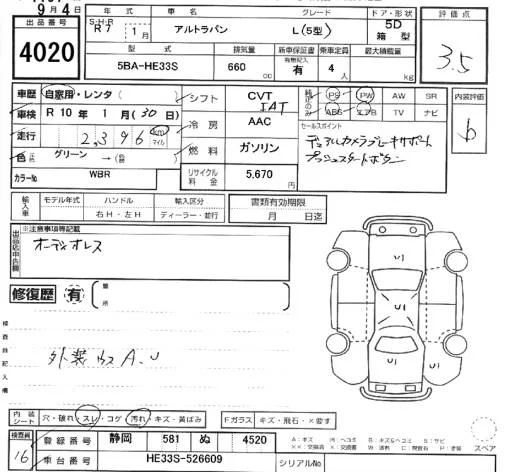 9月4日
出品番号
4020
S・H・R 年式 車名 グレード ドア・形状
R7 1月 アルトラパン L(5型) 5D 箱型
評価点
3.5
型式 排気量 新車保証書 有無記入 乗車定員 最大積載量
5BA-HE33S 660 cc 有 4人 kg
車歴 自家用・レンタ( )
車検 R10年1月(30日)
走行 2,396 km マイル
色 グリーン → (色替)
カラーNo WBR
シフト CVT IAT
冷房 AAC
燃料 ガソリン
リサイクル料金 5,670 円
PS PW AW SR
ABS エアB TV ナビ
セールスポイント
デュアルカメラブレーキサポート
プッシュスタートボタン
内装評価
b
輸入車 モデル年式 ハンドル 輸入区分
右H・左H ディーラー・並行
書類有効期限
月 日迄
出品店申告欄
※注意事項等記載
オーディオレス
修復歴 有 箇所
検査員記入欄
外装 A.U
U1
U1
U1
スペア
内装シート 穴・破れ・スレ・コゲ・汚れ・キズ・黄ばみ
Fガラス キズ・飛石・X要す
検査員
16
登録番号 静岡 581 ぬ 4520
車台番号 HE33S-526609
シリアルNo